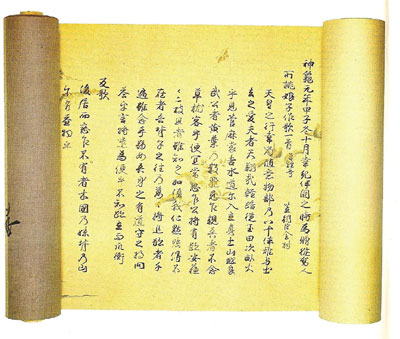 神龜元年甲子冬十月幸紀伊國之時為贈從駕人
所誂娘子作歌一首并短歌
笠朝臣金村
天皇之行幸乃隨意物部乃八十伴雄与出
去之愛夫者天翔哉軽路従玉田次畝火
乎見管麻裳吉木道尓入立真土山越良
武公者黄葉乃散飛見乍親吾者不念
草枕客乎便宜常思乍公将有跡安蘇
々二破且者雖知之加須我仁黙然得不
在者吾背子之徃乃萬々将追跡者千
遍雖念手弱女吾身之有者道守之将問
答乎言将遣為便乎不知跡立而爪衝
反歌
後居而戀乍不有者木國乃妹背乃山
尓有益物乎